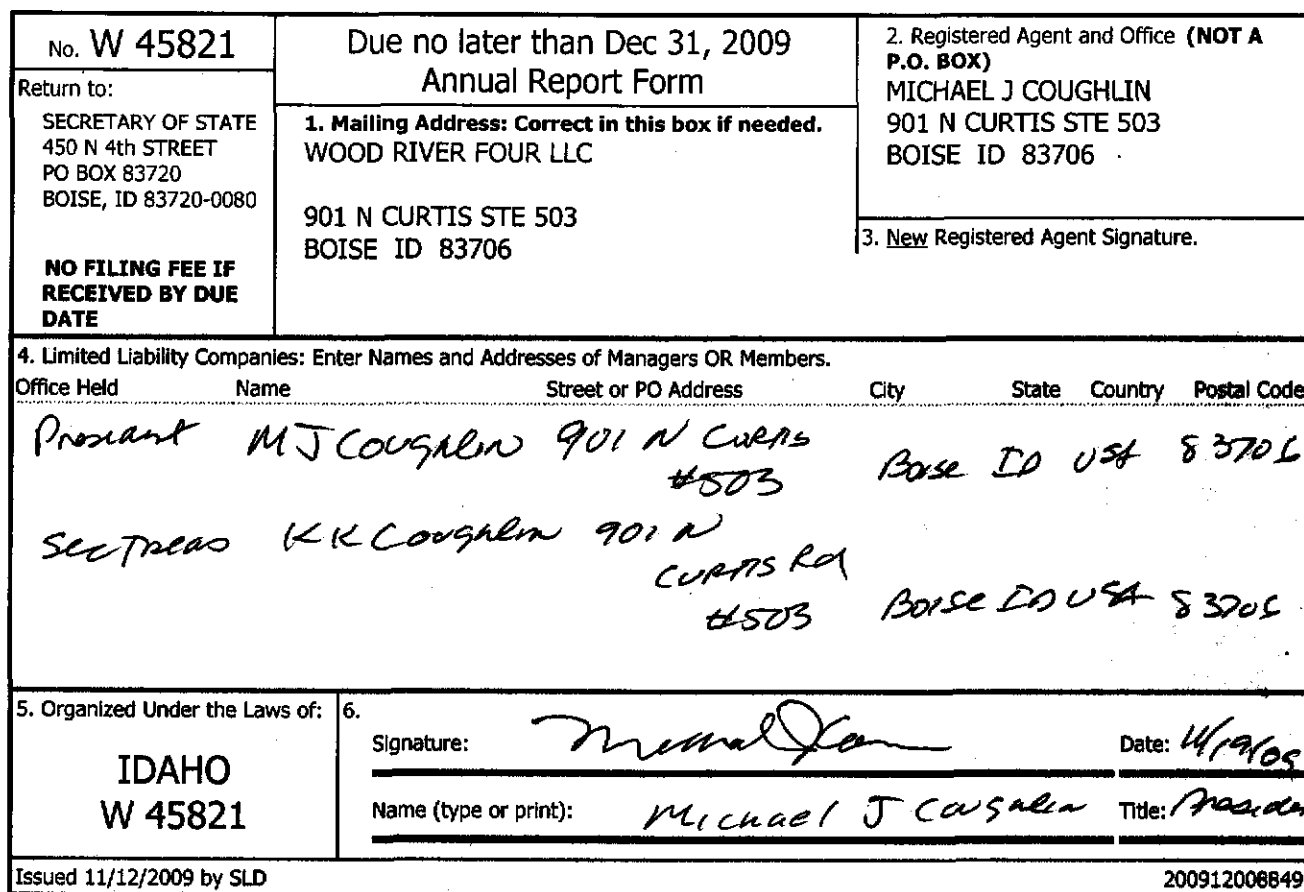 No. W 45821
Return to:
SECRETARY OF STATE
450 N 4th STREET
PO BOX 83720
BOISE, ID 83720-0080
NO FILING FEE IF
RECEIVED BY DUE
DATE
Due no later than Dec 31, 2009
Annual Report Form
1. Mailing Address: Correct in this box if needed.
WOOD RIVER FOUR LLC
901 N CURTIS STE 503
BOISE ID 83706
2. Registered Agent and Office (NOT A
P.O. BOX)
MICHAEL J COUGHLIN
901 N CURTIS STE 503
BOISE ID 83706
3. New Registered Agent Signature.
4. Limited Liability Companies: Enter Names and Addresses of Managers OR Members.
Office Held Name Street or PO Address City State Country Postal Code
President MJ Coughlin 901 N Curtis
#503 Boise ID USA 83706
Sec Treas KK Coughlin 901 N
Curtis Rd
#503 Boise ID USA 83706
5. Organized Under the Laws of:
IDAHO
W 45821
6.
Signature: Date: 11/19/09
Name (type or print): Michael J Coughlin Title: President
Issued 11/12/2009 by SLD